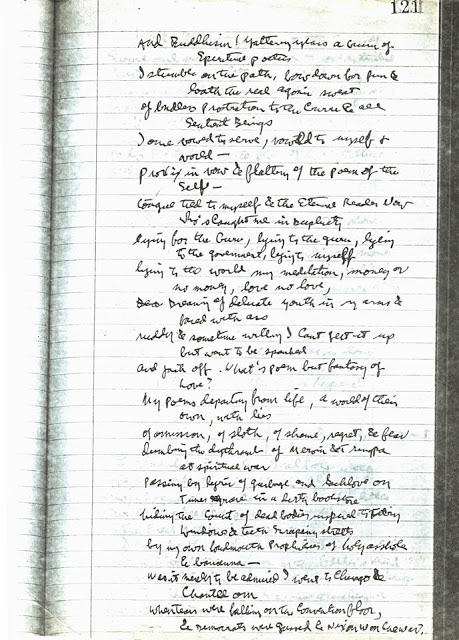 121
And Buddhism! Yattering years a
Spiritual poetics
I stumble on the path, bow down for fun &
loath the real again sweat
of endless prostration to the Guru & all
Sentient Beings
I once vowed to serve, vow'd to myself &
world —
in vow & flattery of the Poem of the
Self —
tongue tied to myself & the Eternal Reader Now
Who's caught me in Duplicity
lying for the Guru, lying to the guru, lying
to the government, lying to myself
lying to the world my meditation, money or
no money, love no love,
Dreaming of delicate youth in my arms &
faced with ass
ruddy & sometime willing I Cant get it up
but want to be spanked
and jack off. What's poem but fantasy of
love?
My poems departing from life, a world of their
own, with lies
of omission, of sloth, of shame, regret, & fear
describing the dethronement of Merwin & Trungpa
at spiritual war
Passing by lyric of garbage and Sex love on
Times Square in a dirty bookstore
hiding the Count of dead bodies
Windows & teeth scraping streets
by my own loudmouth Prophecies of holy asshole
& banana —
Was it merely to be admired I went to Chicago &
Chanted om
when tears were falling on the Convention floor,
& Democrats were gassed & Nixon Won